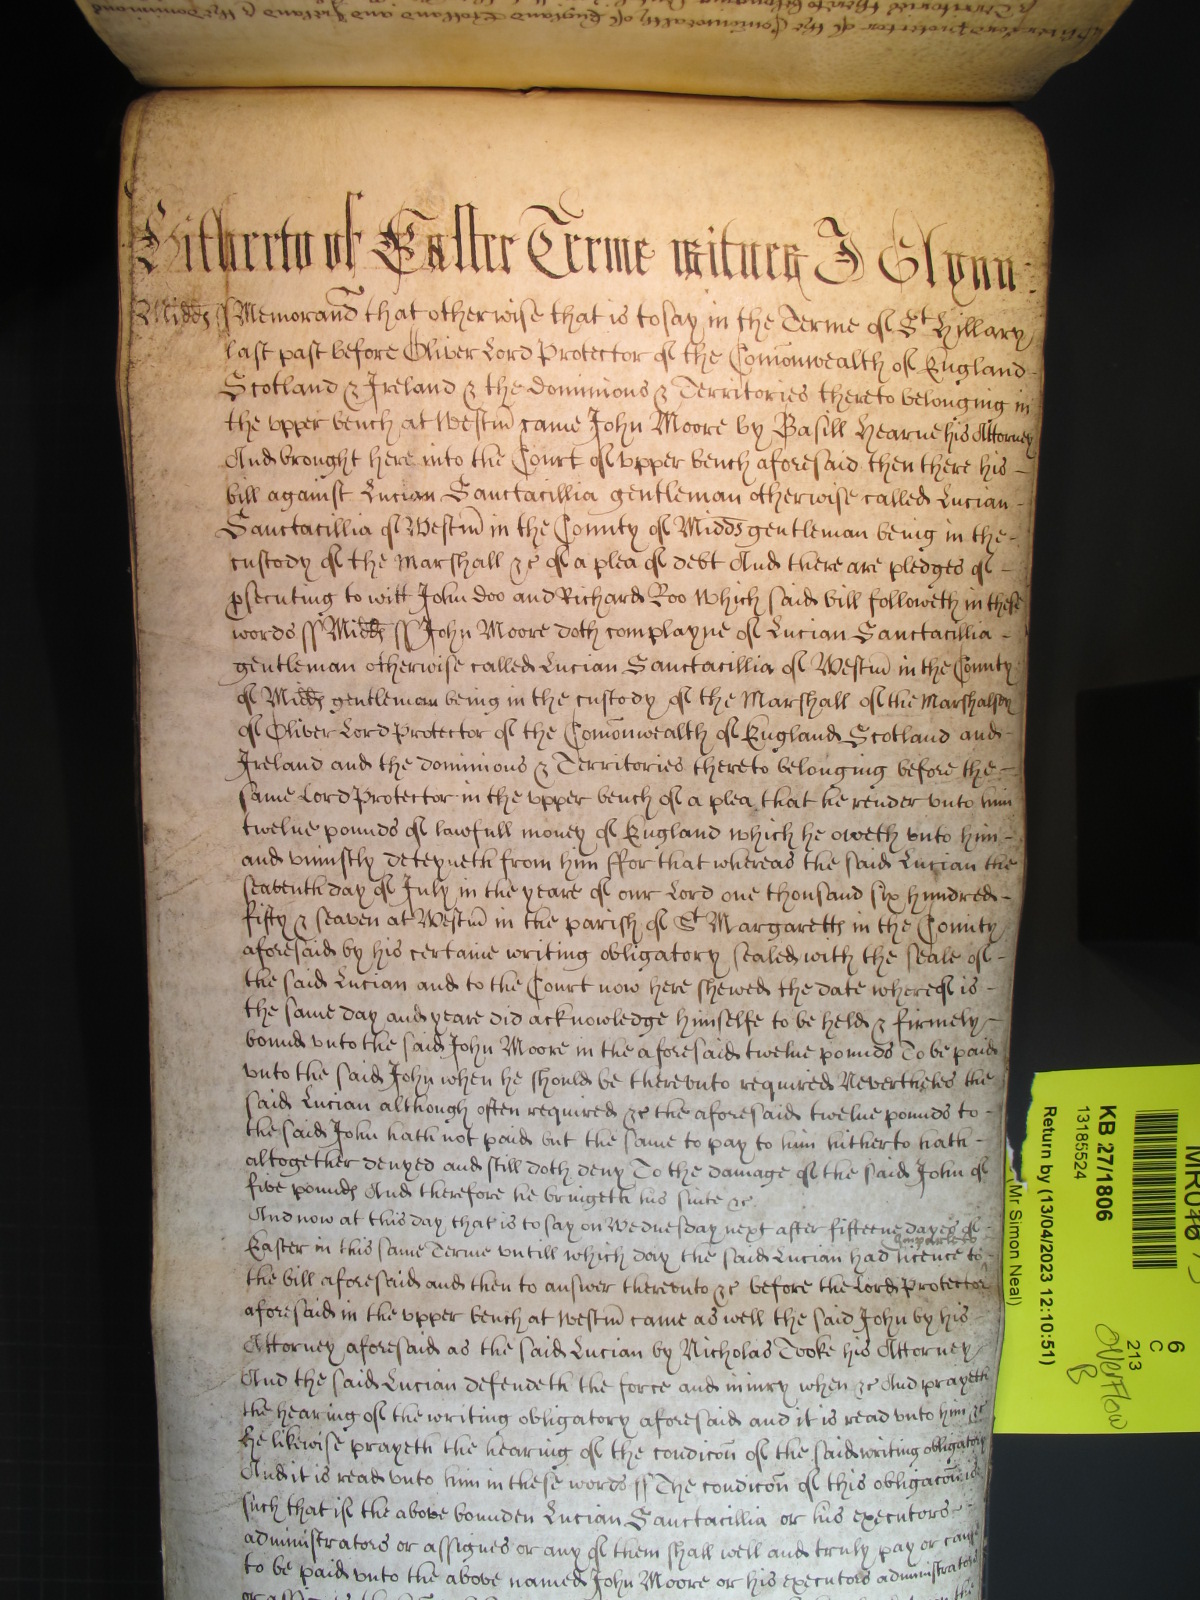 Hitherto of Easter Terme witnes J Glynn:
Midds ss Memorand that otherwise that is to say in the Terme of St Hillary
last past before Oliver Lord Protector of the Comonwealth of England
Scotland & Ireland & the dominions & Territories thereto belonging in
the upper bench at Westm came John Moore by Basill Hearne his Attorney
And brought here into the Court of upper bench aforesaid then there his
bill against Lucian Sanctacillia gentleman otherwise called Lucian
Sanctacillia of Westm in the County of Midds gentleman being in the
custody of the Marshall &c of a plea of debt And there are pledges of
psecuting to witt John Doo and Richard Roo Which said bill followeth in these
words ss Midds ss John Moore doth complayne of Lucian Sanctacillia
gentleman otherwise called Lucian Sanctacillia of Westm in the County
of Midds gentleman being in the custody of the Marshall of the Marshalsey
of Oliver Lord Protector of the Comonwealth of England Scotland and
Ireland and the dominions & Territories thereto belonging before the
same Lord Protector in the upper bench of a plea that he render unto him
twelue pounds of lawfull money of England which he oweth unto him
and uniustly deteyneth from him ffor that whereas the said Lucian the
seaventh day of July in the yeare of our Lord one thousand six hundred
fifty & seaven at Westm in the parish of St Margaretts in the County
aforesaid by his certaine writing obligatory sealed with the seale of
the said Lucian and to the Court now here shewed the date whereof is
the same day and yeare did acknowledge himselfe to be held & firmely
bound unto the said John Moore in the aforesaid twelue pounds To be paid
unto the said John when he should be thereunto required Nevertheles the
said Lucian although often required &c the aforesaid twelue pounds to
the said John hath not paid but the same to pay to him hitherto hath
altogether denyed and still doth deny To the damage of the said John of
five pounds And therefore he bringeth his suite &c
And now at this day that is to say on Wednesday next after fifteene dayes of
Easter in this same Terme untill which day the said Lucian had licence to imparle to
the bill aforesaid and then to answer thereunto &c before the Lord Protector
aforesaid in the upper bench at Westm came as well the said John by his
Attorney aforesaid as the said Lucian by Nicholas Tooke his Attorney
And the said Lucian defendeth the force and iniury when &c And prayeth
the hearing of the writing obligatory aforesaid and it is read unto him &c
he likewise prayeth the hearing of the condicon of the said writing obligatory
And it is read unto him in these words ss The condicon of this obligacon is
such that if the above bounden Lucian Sanctacillia or his executors
administrators or assignes or any of them shall well and truly pay or cause
to be paid unto the above named John Moore or his executors administrators
KB 27/1806
13185524
Return by (13/04/2023 12:10:51)
(Mr Simon Neal)
6
C
213
Overflow
B